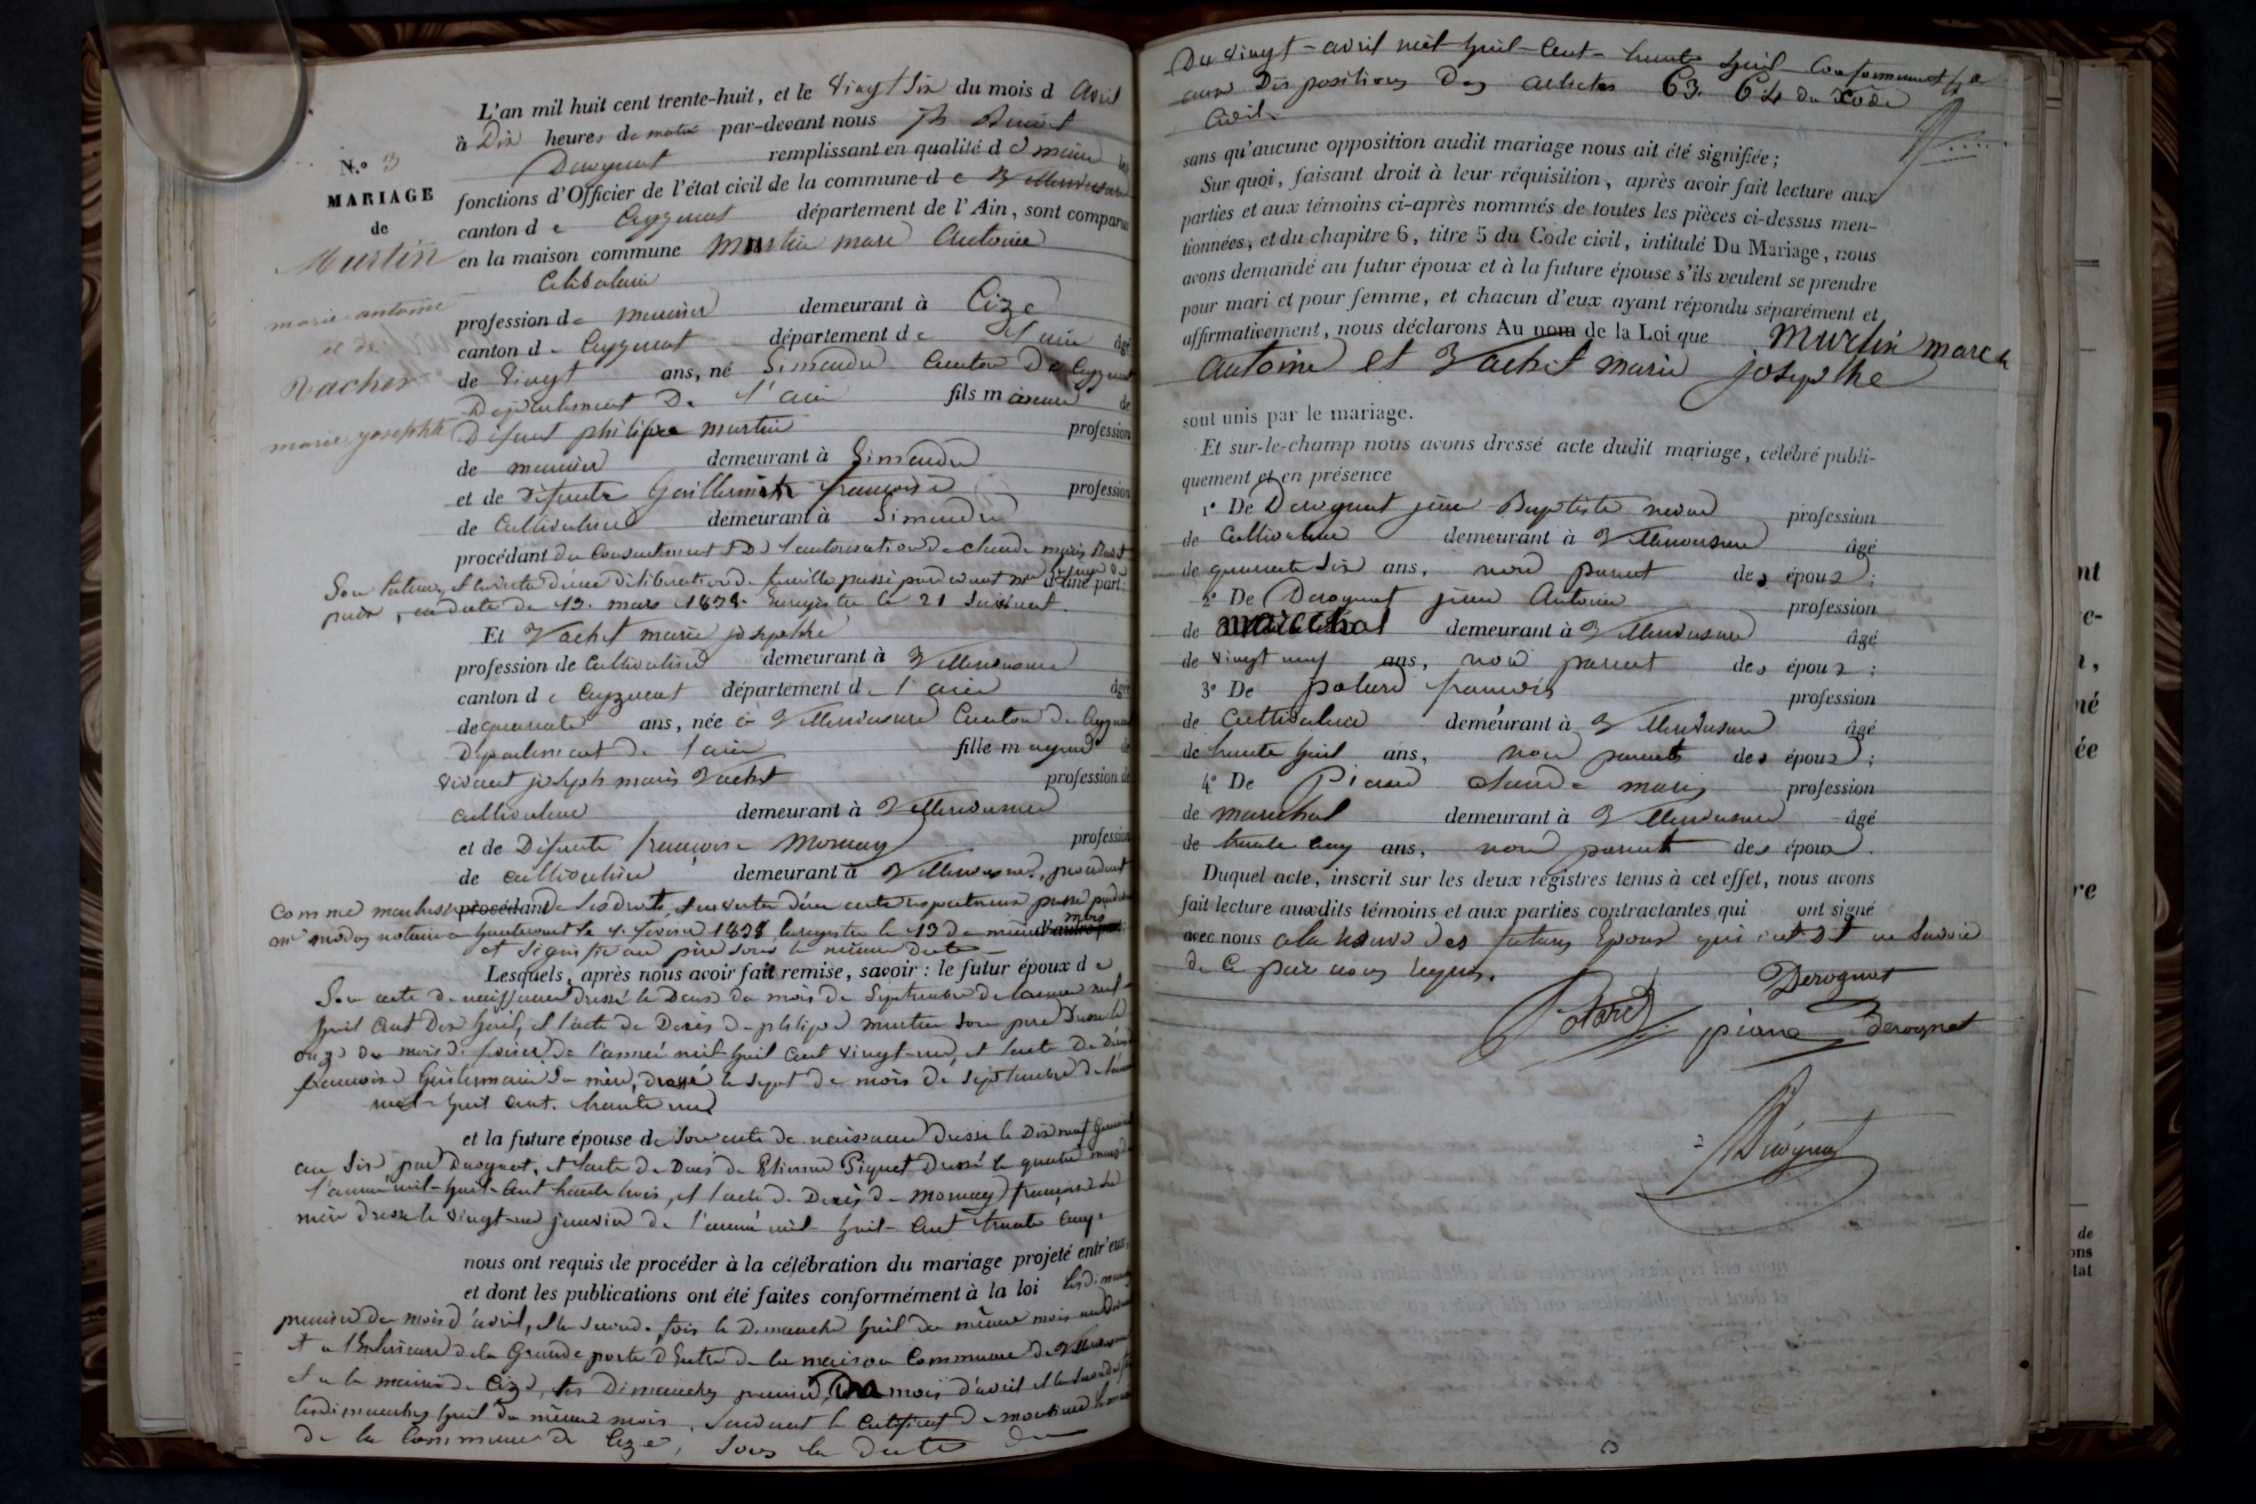 L'an mil huit cent trente-huit, et le vingt six du mois d avril
à Dix heures du matin par-devant nous
Derognat remplissant en qualité d e maire les
N.º 3
fonctions d'Officier de l'état civil de la commune d e Villereversure
MARIAGE
canton d e Ceyzeriat département de l'Ain, sont comparus
de
en la maison commune Martin marc Antoine
Martin
Célibataire
marie antoine
profession de meunier demeurant à Cize
et de
canton de Ceyzeriat département de l'ain âgé
Vachet
de vingt ans, né Simandre Canton De Ceyzeriat
Département De l'ain fils mineur de
marie josephte
Défunt philipe martin profession
de meunier demeurant à Simandre
et de Défunte françoise profession
de Cultivatrice demeurant à Simandre
procédant du Consentement l'autorisation de claude marie
Son tuteur, et en vertu d'une délibération de famille passé par devant d'une part;
paix, en date du 13 mars 1838. Enregistré le 21 Suivant.
Et Vachet marie josephte
profession de Cultivatrice demeurant à Villereversure
canton d e Ceyzeriat département de l'ain âgée
de quarante ans, née à Villereversure Canton de Ceyzeriat
Département de l'ain fille majeure de
vivant joseph marie Vachet profession de
cultivateur demeurant à Villereversure
et de Défunte françoise Mornay profession
de cultivatrice demeurant à Villereversure, procédant
Comme procédant de ses droits, et en vertu d'un acte respectueux passé
notaire à le février 1838 enregistré le 13 du même mois
et signifié au père sous la même date
Lesquels, après nous avoir fait remise, savoir : le futur époux d e
Son acte de naissance dressé le Douze du mois de Septembre de l'année mil
huit Cent Dix huit, et l'acte de Décès de philipe martin son père Dressé le
onze du mois de février de l'année mil huit Cent vingt-un, et l'acte De Décès
françoise sa mère, dressé le sept de mois de septembre de l'année
mil-huit Cent. trente un
et la future épouse de Son acte de naissance Dressé le Dix neuf
an Six par Derognat, et l'acte de Décès de Etienne Piquet Dressé le quatre mars
l'année mil-huit-Cent trente trois, et l'acte de Décès de Mornay françoise sa
mère dressé le vingt-un janvier de l'année mil-huit-Cent trente cinq.
nous ont requis de procéder à la célébration du mariage projeté entr'eux,
et dont les publications ont été faites conformément à la loi
premier du mois d'avril, et la seconde fois le Dimanche huit du même mois
et à l'Extérieur de la Grande porte D'Entrée de la maison Commune de Villereversure
et à la mairie de Cize, les Dimanches premier Du mois d'avril et la seconde
les dimanches huit du même mois. Suivant le Certificat De monsieur le maire
de la Commune de Cize, sous la date Du
Du vingt-avril mil-huit-Cent-trente huit Conformément
aux Dispositions Des articles 63. 64 du Code
Civil.
sans qu'aucune opposition audit mariage nous ait été signifiée;
Sur quoi, faisant droit à leur réquisition, après avoir fait lecture aux
parties et aux témoins ci-après nommés de toutes les pièces ci-dessus men-
tionnées, et du chapitre 6, titre 5 du Code civil, intitulé Du Mariage, nous
avons demandé au futur époux et à la future épouse s'ils veulent se prendre
pour mari et pour femme, et chacun d'eux ayant répondu séparément et
affirmativement, nous déclarons Au nom de la Loi que Martin marc
Antoine et Vachet marie josephte
sont unis par le mariage.
Et sur-le-champ nous avons dressé acte dudit mariage, célébré publi-
quement et en présence
1º De Derognat jean Baptiste profession
de Cultivateur demeurant à Villereversure âgé
de quarante six ans, non parent des époux;
2º De Derognat jean Antoine profession
de marechal demeurant à Villereversure âgé
de vingt neuf ans, non parent des époux;
3º De polard françois profession
de Cultivateur demeurant à Villereversure âgé
de trente huit ans, non parent des époux;
4º De Piand claude marie profession
de marechal demeurant à Villereversure âgé
de trente cinq ans, non parent des époux.
Duquel acte, inscrit sur les deux registres tenus à cet effet, nous avons
fait lecture auxdits témoins et aux parties contractantes qui ont signé
avec nous a la réserve des futurs époux qui ont dit ne savoir
de ce par nous requis.
Derognat
polard piand derognat
Derognat